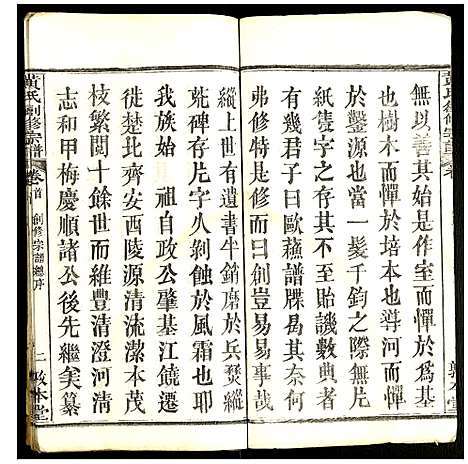 無以善其始是作室而憚於爲基
也樹木而憚於培本也導河而憚
於鑿源也當一髮千鈞之際無片
紙隻字之遺而欲
前人有言君曰歐蘇譜牒昜其奈何
弗修特是修而曰創豈易易事哉
縱上世有遺書牛銷磨於兵燹縱
荒碑存片字人剝蝕於風霜已也耶
我族始祖自政公肇基江饒遷
徙楚北齊安西陵源清流潔本茂
枝繁閱十餘世而維豐清澄河清
志和甲梅慶順諸公後先繼美纂
黃氏創修宗譜
卷首
創修宗譜總序
二
敦本堂